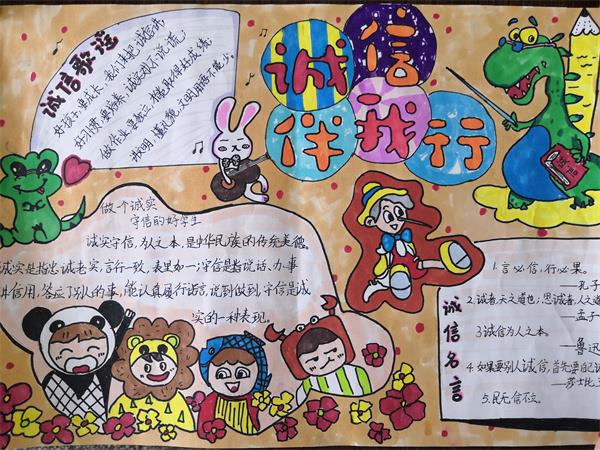 诚信伴我行
诚信歌谣
好孩子,要成长,我们来把诚信讲,
好习惯,要培养,诚实对人不说谎;
做作业,要独立,才能取得好成绩;
做文明,懂礼貌,文明用语不能少。
做一个诚实
守信的好学生
诚实守信,为人之本,是中华民族的传统美德。
诚实是指忠诚老实,言行一致,表里如一;守信是指说话、办事
讲信用,答应了别人的事,能认真履行诺言,说到做到,守信是诚
实的一种表现。
诚信名言
1.言必信,行必果。
——孔子
2.诚者,天之道也;思诚者,人之道
——孟子
3.诚信为人之本。
——鲁迅
4.如果要别人诚信,首先要自己诚
——莎士比
5.民无信不立。